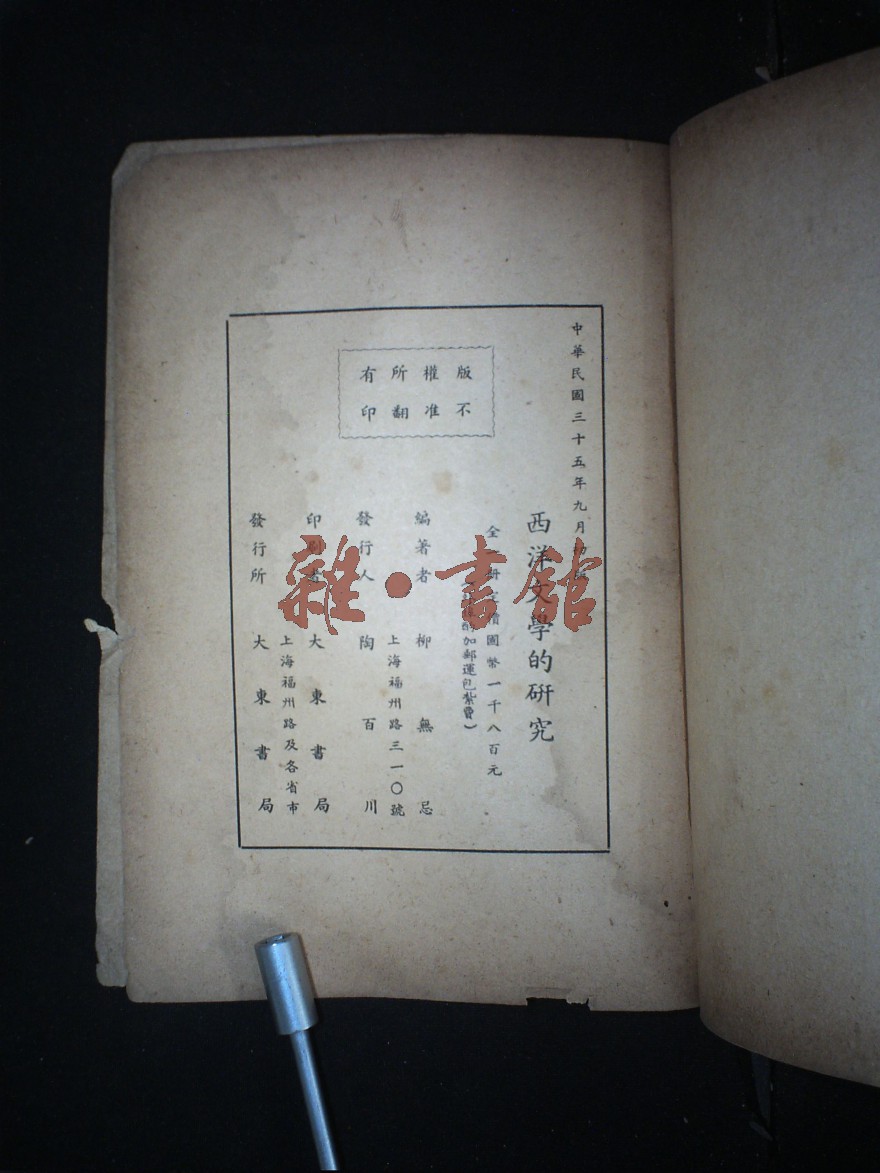 中華民國三十五年九月初版
版權所有
不准翻印
西洋文學的研究
全一冊定價國幣一千八百元
酌加郵運包紮費)
編著者 柳無忌
發行人 陶百川
上海福州路三一〇號
印刷者 大東書局
上海福州路及各省市
發行所 大東書局
雜·書館